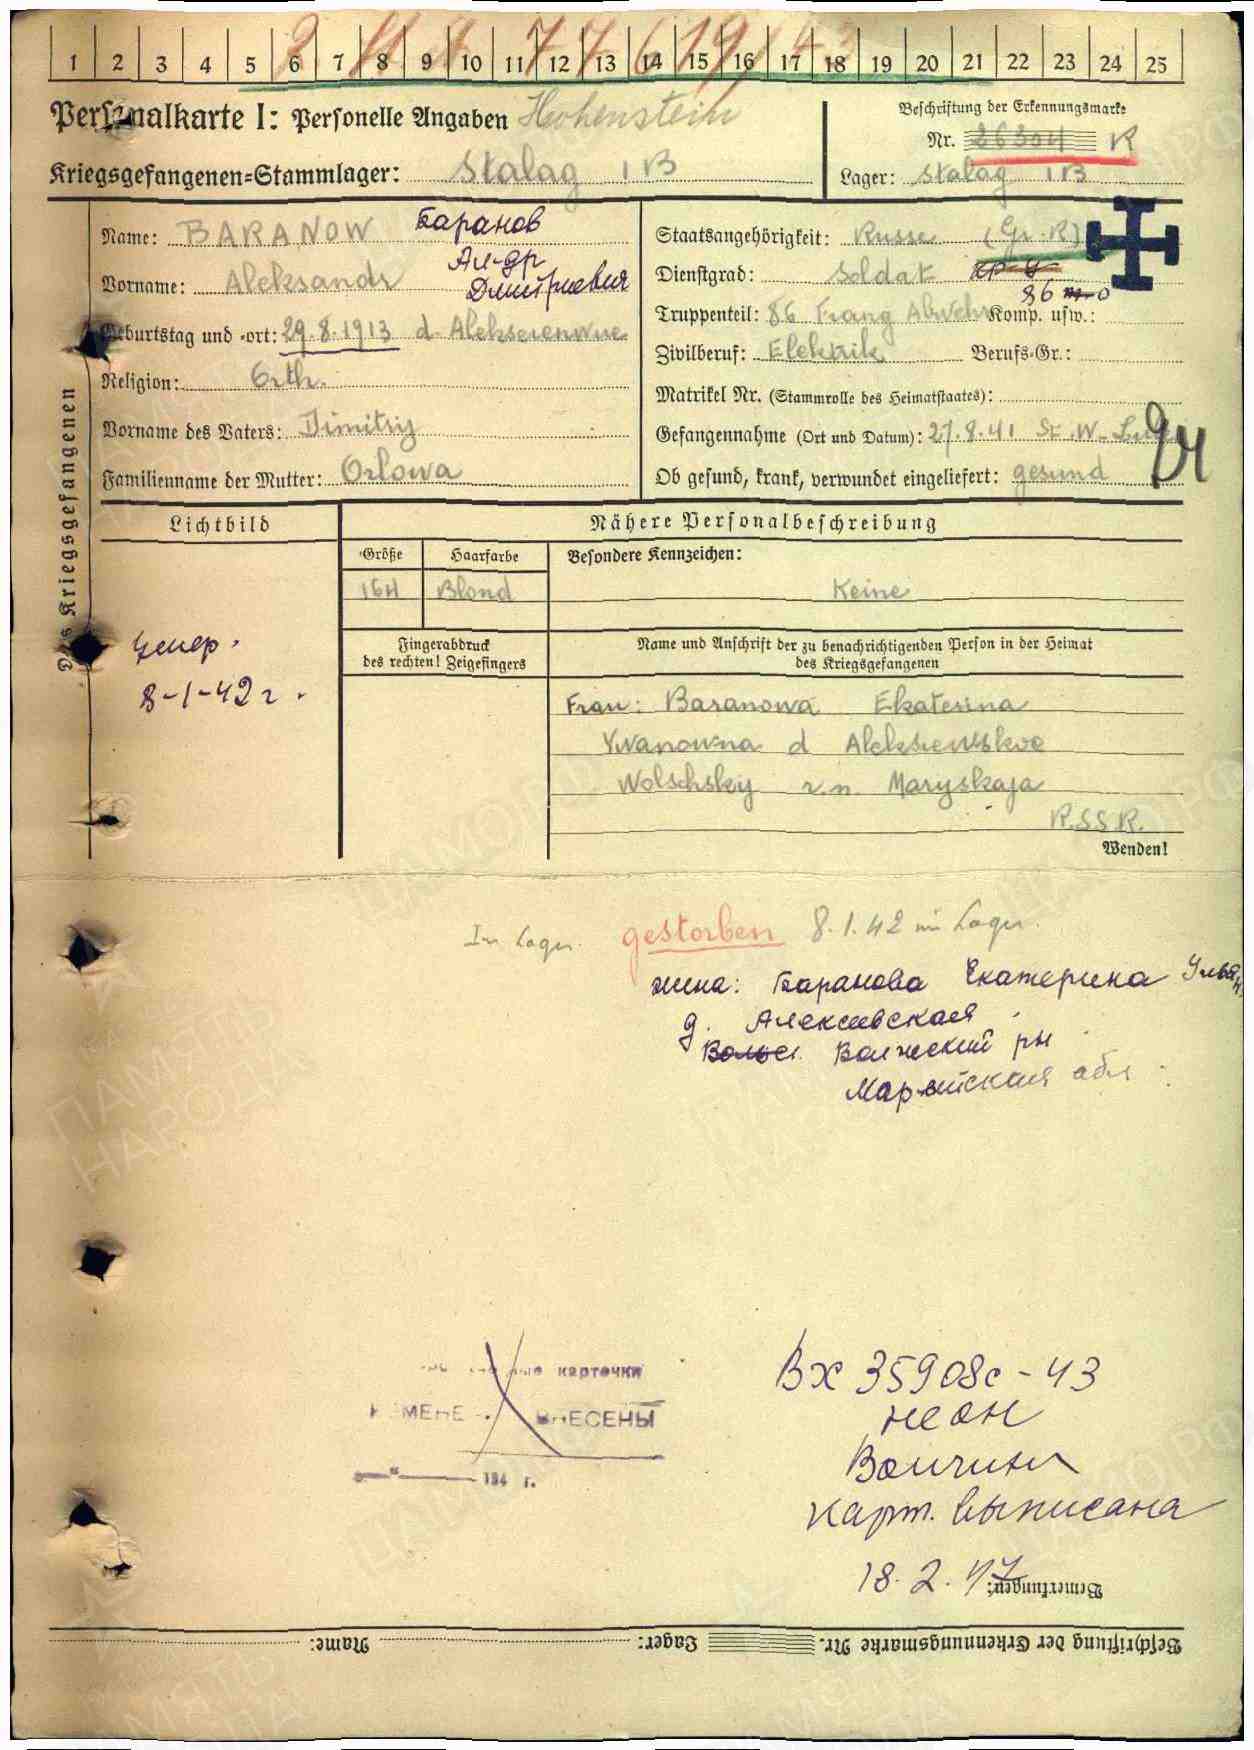 1 2 3 4 5 6 7 8 9 10 11 12 13 14 15 16 17 18 19 20 21 22 23 24 25
Personalkarte I: Personelle Angaben Hohenstein
Beschriftung der Erkennungsmarke
Nr. 26304 R
Kriegsgefangenen-Stammlager: Stalag I B
Lager: Stalag I B
Des Kriegsgefangenen
Name: BARANOW Баранов
Ал-др
Vorname: Aleksandr Дмитриевич
Geburtstag und -ort: 29.8.1913 d. Aleksrenwue
Religion: Orth.
Vorname des Vaters: Dimitriy
Familienname der Mutter: Orlowa
Staatsangehörigkeit: Russe (Gr. R)
Dienstgrad: Soldat
86
Truppenteil: 86 Frang Abwehr Komp. usw.:
Zivilberuf: Elektrik Berufs-Gr.:
Matrikel Nr. (Stammrolle des Heimatstaates):
Gefangennahme (Ort und Datum): 27.8.41 St. W-
Ob gesund, krank, verwundet eingeliefert: gesund
Lichtbild
Nähere Personalbeschreibung
Größe Haarfarbe Besondere Kennzeichen:
164 Blond Keine
умер.
8-1-42 г.
Fingerabdruck
des rechten! Zeigefingers
Name und Anschrift der zu benachrichtigenden Person in der Heimat
des Kriegsgefangenen
Frau: Baranowa Ekaterina
Ywanowna d Aleksiewskoe
Wolschsky r.n. Maryskaja
R.S.S.R.
Wenden!
In Lager. gestorben 8.1.42 im Lager.
жина: Баранова Екатерина
д. Алексевская
Вольс. Волжский рн
Марийская обл.
карточки
ВНЕСЕНЫ
194 г.
Вх 35908с-43
не он
Волчин
карт. выписана
18.2.47
Bemerkungen:
Beschriftung der Erkennungsmarke Nr. Lager: Name: